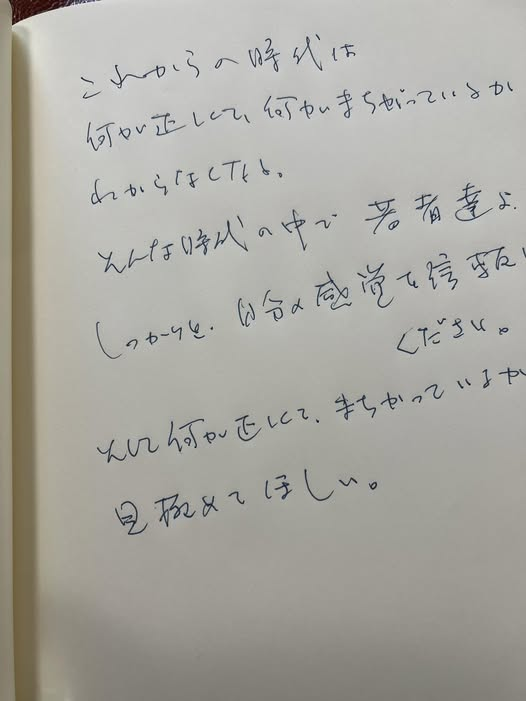 これからの時代は
何が正しくて、何がまちがっているか
わからなくなる。
そんな時代の中で 若者達よ
しっかりと、自分の感覚を信頼し
ください。
そして何が正しくて、まちがっているか
見極めてほしい。